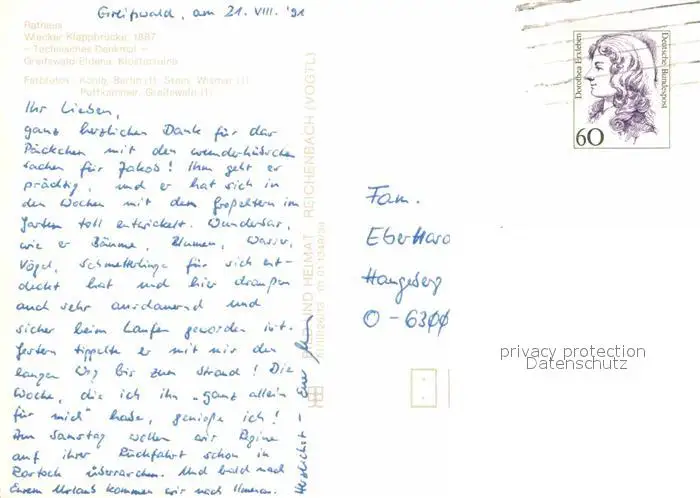 Greifswald, am 21. VIII. '91
Rathaus
Wiecker Klappbrücke, 1887
- Technisches Denkmal -
Greifswald-Eldena, Klosterruine
Farbfotos: König, Berlin (1), Stein, Wismar (1)
Puttkammer, Greifswald (1)
Ihr Lieben,
ganz herzlichen Dank für das
Päckchen mit den wunderhübschen
sachen für Jakob! Ihm geht es
prächtig, und er hat sich in
den Wochen mit den Großeltern im
Garten toll entwickelt. Wunderbar,
wie er Bäume, Blumen, Wasser,
Vögel, Schmetterlinge für sich ent-
deckt hat und hier draußen
auch sehr ausdauernd und
sicher beim Laufen geworden ist.
Gestern tippelte er mit mir den
langen Weg bis zum Strand! Die
Woche, die ich ihn „ganz allein
für mich" habe, genieße ich!
Am Samstag wollen wir Regine
auf ihrer Rückfahrt schon in
Rostock überraschen. Und bald nach
Eurem Urlaub kommen wir nach Ilmenau.
Herzlichst - Eure
BILD UND HEIMAT REICHENBACH (VOGTL)
Dorothea Erxleben
Deutsche Bundespost
60
Fam.
Eberhard
Hangeberg
O - 6300
privacy protection
Datenschutz